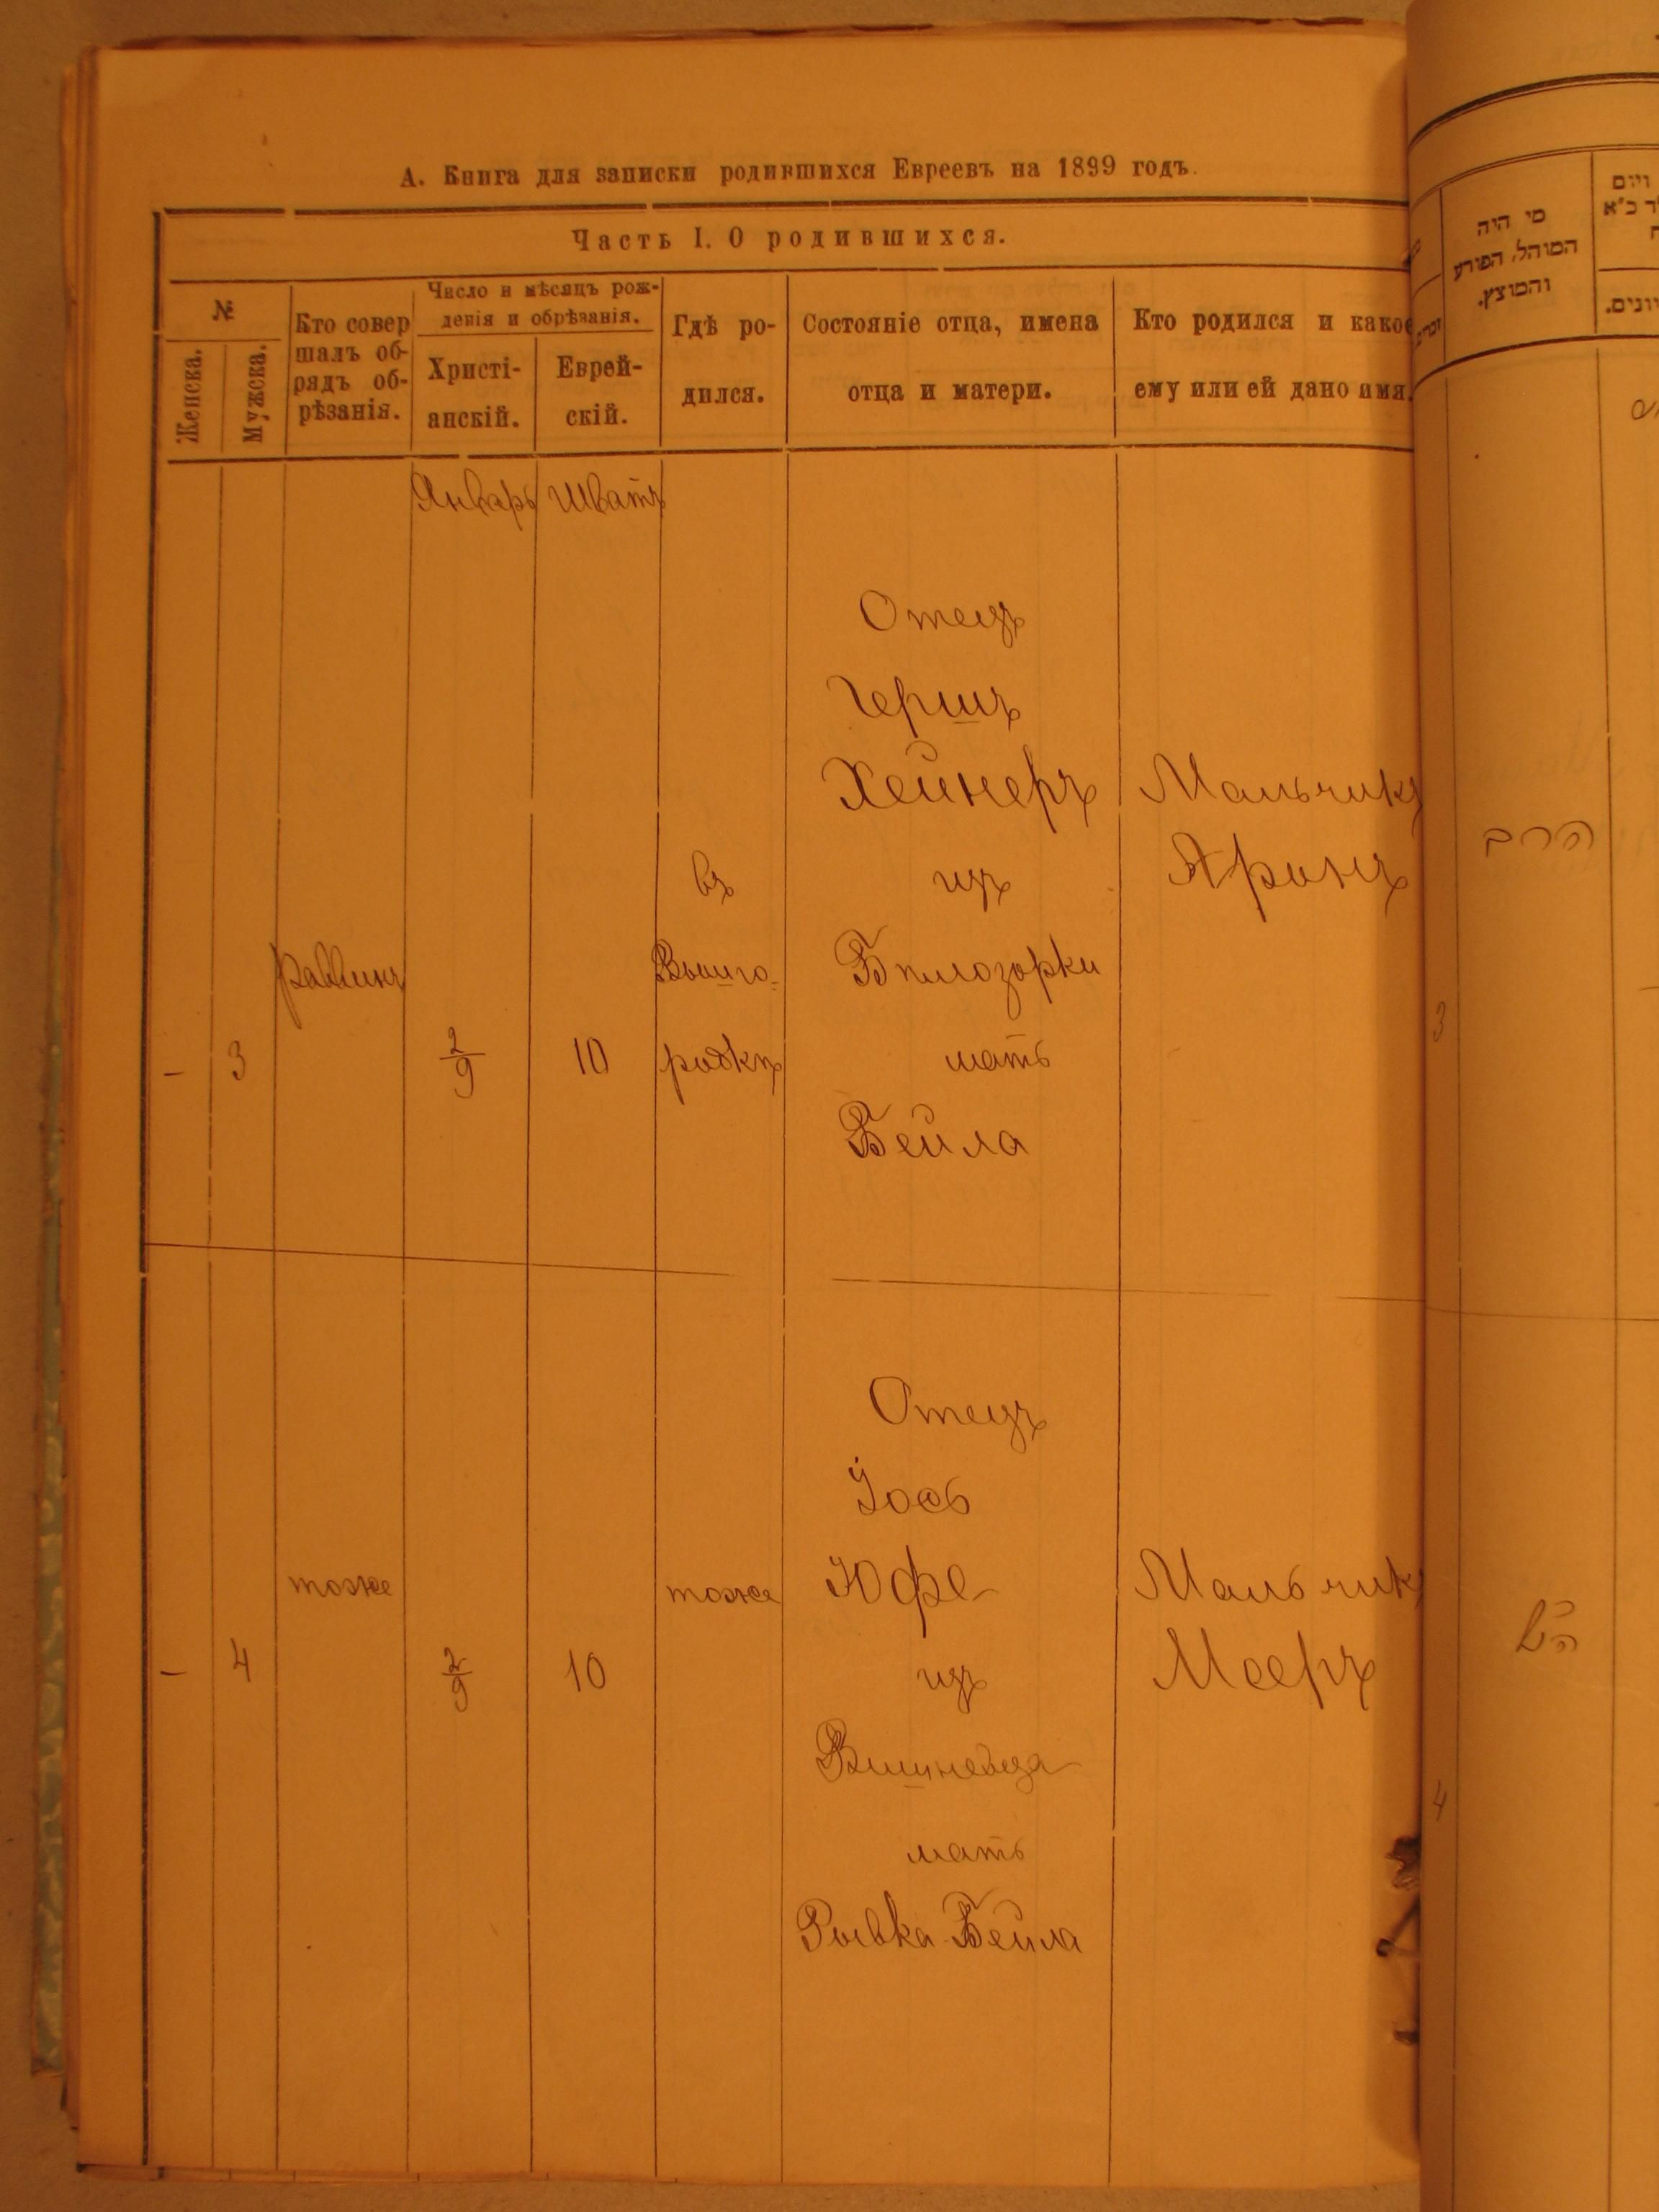 А. Книга для записки родившихся Евреевъ на 1899 годъ.
Часть I. О родившихся.
№
Женска.
Мужска.
Кто совер
шалъ об-
рядъ об-
рѣзанія.
Число и мѣсяцъ рож-
денія и обрѣзанія.
Христі-
анскій.
Еврей-
скій.
Гдѣ ро-
дился.
Состояніе отца, имена
отца и матери.
Кто родился и какое
ему или ей дано имя.
Январь
Шватъ
– 3
раввинъ
2/9
10
въ
Вышго-
родкѣ
Отецъ
Гершъ
Хейнеръ
изъ
Бѣлозорки
мать
Бейла
Мальчикъ
Аронъ
– 4
тоже
2/9
10
тоже
Отецъ
Іось
Юфе
изъ
Вишневца
мать
Рывка Бейла
Мальчикъ
Мееръ
מי היה
המוהל, הפורע
והמוצץ.
הרב
3
4